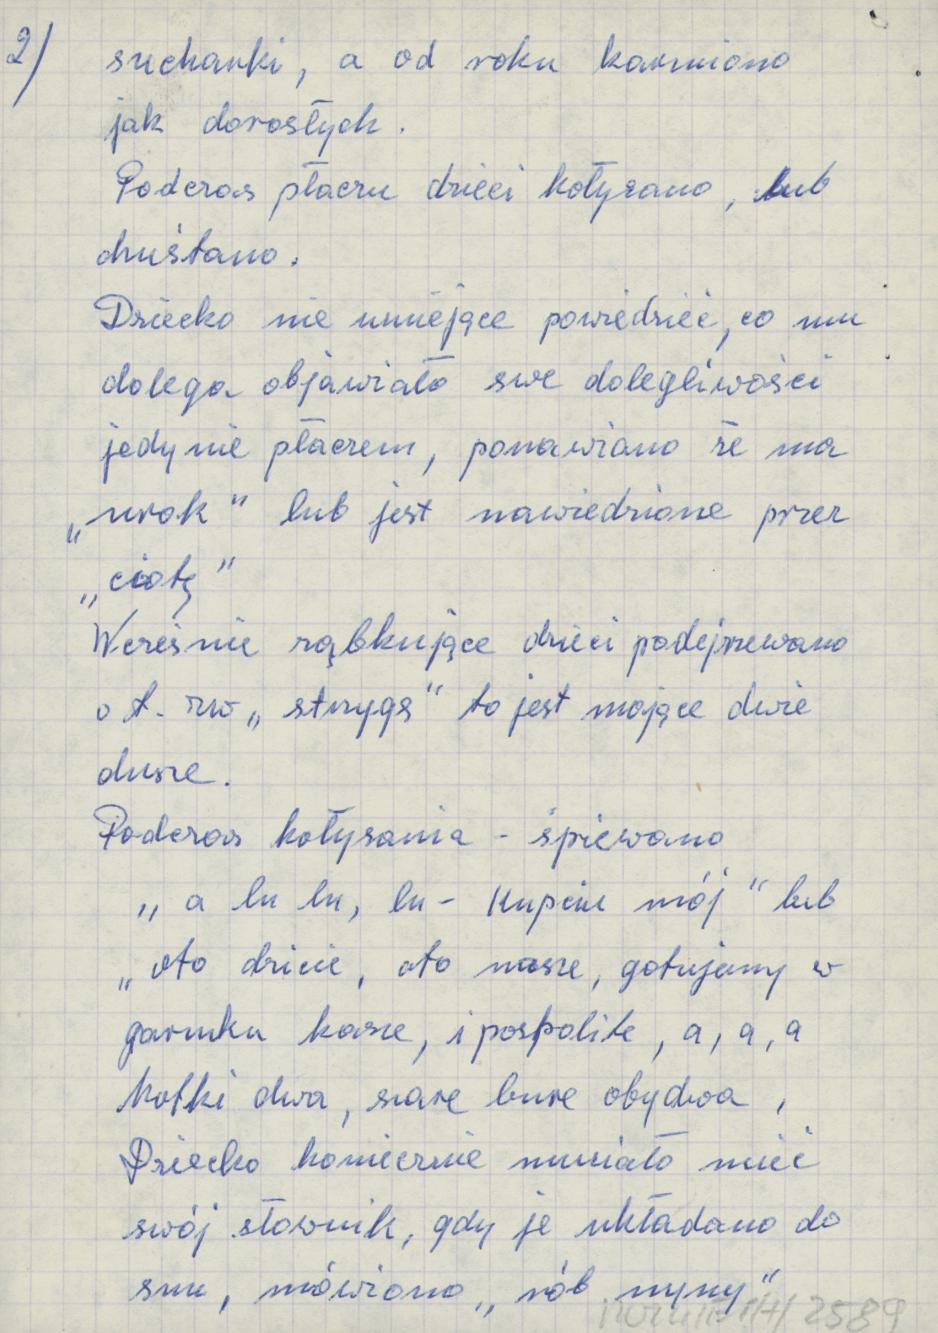 2/ suchanki, a od roku karmiono
jak dorosłych.
Podczas płaczu dzieci kołysano, lub
chuśtano.
Dziecko nie umiejące powiedzieć, co mu
dolega objawiało swe dolegliwości
jedynie płaczem, ponawiano że ma
„urok" lub jest nawiedzione przez
„ciotę"
Wcześnie ząbkujące dzieci podejrzewano
o t. zw „strzygę" to jest mające dwie
dusze.
Podczas kołysania - śpiewano
„a lu lu, lu - Kupciu mój" lub
„oto dzicie, oto nasze, gotujemy w
garnku kasze, i pospolite, a, a, a
Kotki dwa, szare bure obydwa,
Dziecko koniecznie musiało mieć
swój słownik, gdy je układano do
snu, mówiono „rób nyny"
2589